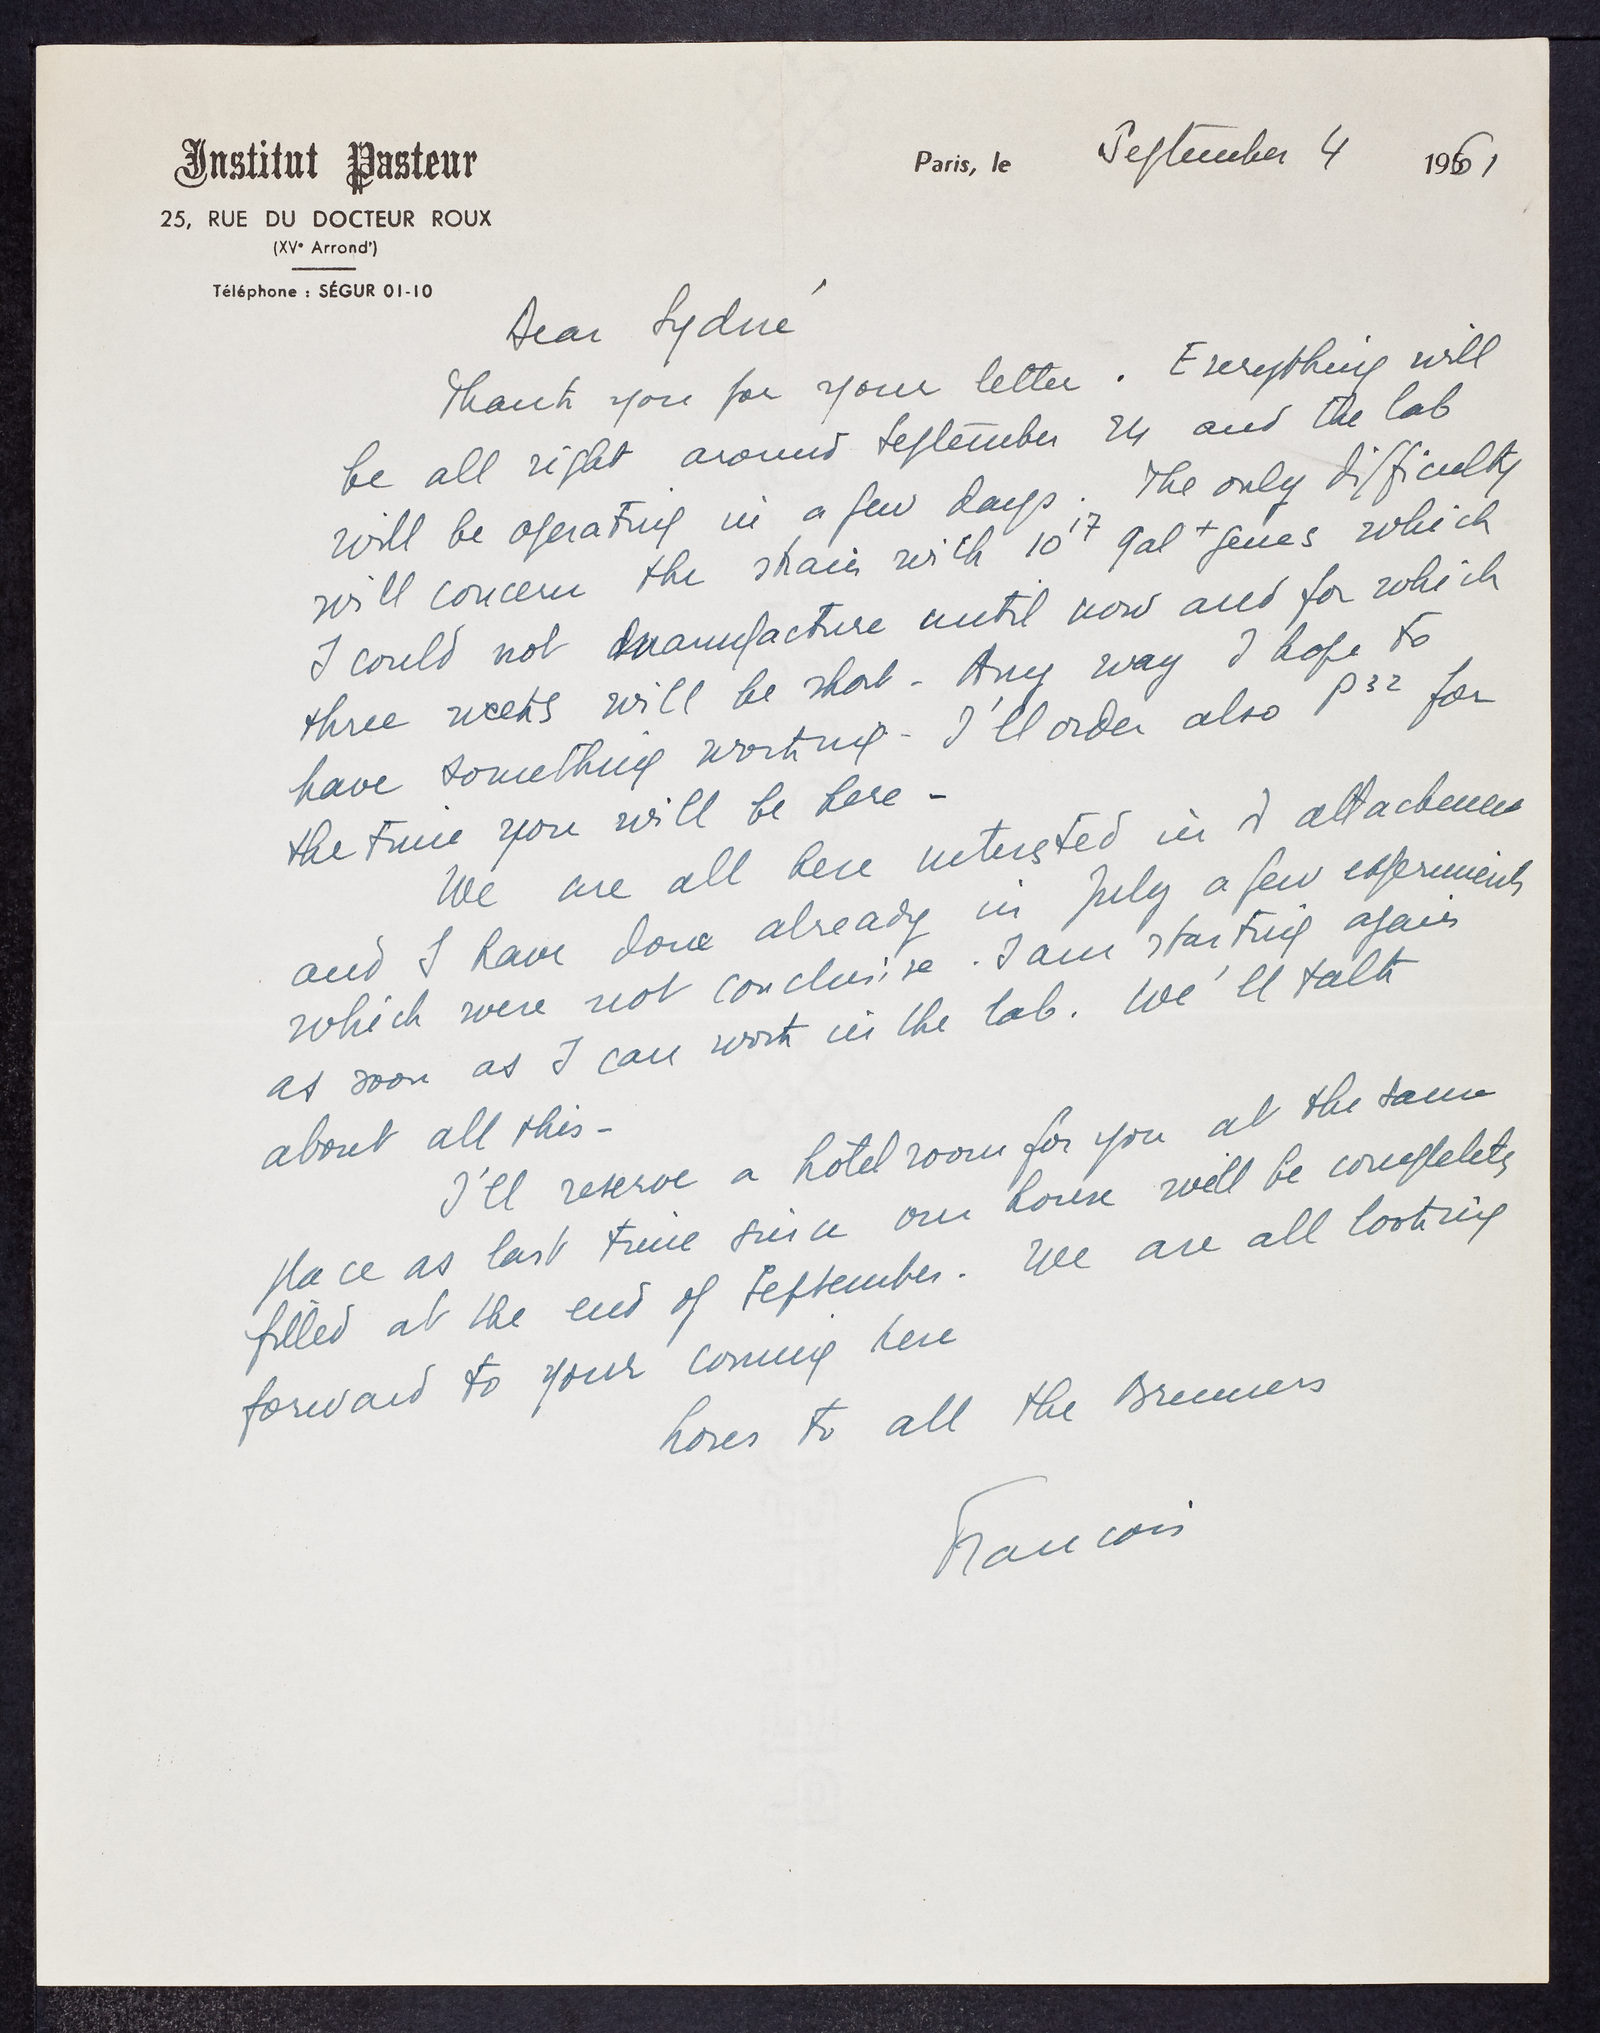 Institut Pasteur
25, RUE DU DOCTEUR ROUX
(XVe Arrondt)
Téléphone : SÉGUR 01-10
Paris, le September 4 1961
Dear Sydné
Thank you for your letter . Everything will
be all right around September 24 and the lab
will be operating in a few days. The only difficulty
will concern the strain with 10^17 gal+ genes which
I could not manufacture until now and for which
three weeks will be short - Any way I hope to
have something working - I'll order also P32 for
the time you will be here -
We are all here interested in λ attachment
and I have done already in July a few experiments
which were not conclusive . I am starting again
as soon as I can work in the lab. We'll talk
about all this -
I'll reserve a hotel room for you at the same
place as last time since our house will be completely
filled at the end of September. We are all looking
forward to your coming here
Loves to all the Brenners
Francois